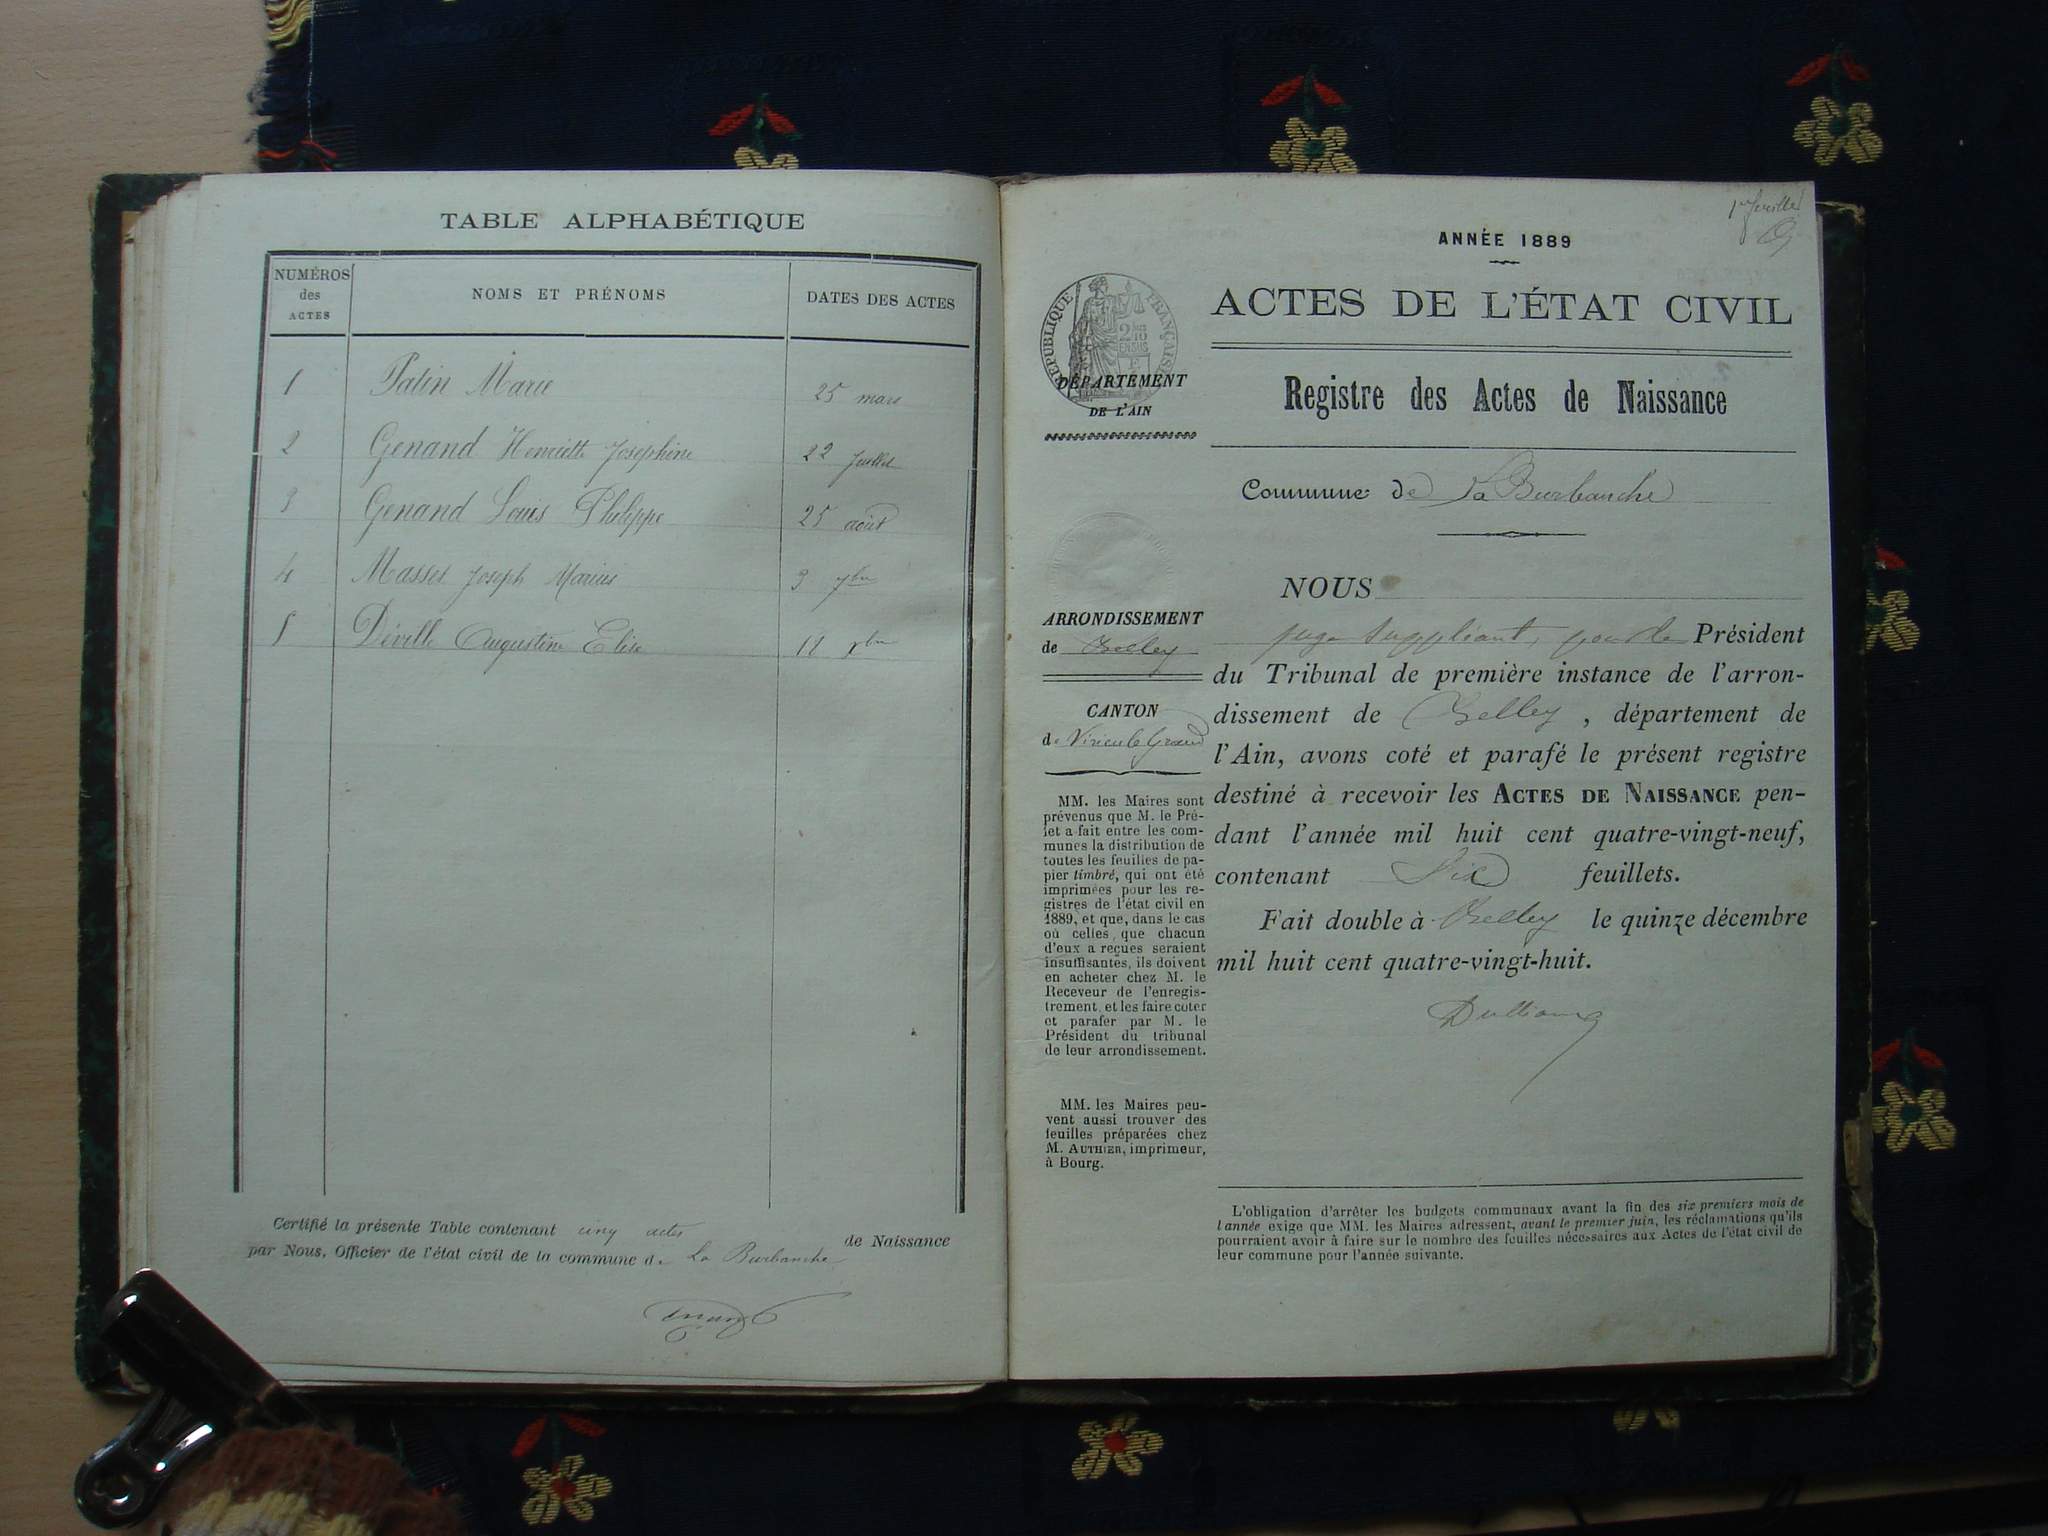 TABLE ALPHABÉTIQUE
NUMÉROS des ACTES
NOMS ET PRÉNOMS
DATES DES ACTES
1 Patin Marie 25 mars
2 Genand Henriette Josephine 22 Juillet
3 Genand Louis Philippe 25 août
4 Masset Joseph Marius 3 7bre
5 Déville Augustine Elise 18 xbre
Certifié la présente Table contenant cinq actes de Naissance
par Nous, Officier de l'état civil de la commune de La Burbanche
1er feuillet
ANNÉE 1889
RÉPUBLIQUE FRANÇAISE
ACTES DE L'ÉTAT CIVIL
DÉPARTEMENT
DE L'AIN
Registre des Actes de Naissance
Commune de La Burbanche
ARRONDISSEMENT
de Belley
CANTON
de Virieu le Grand
MM. les Maires sont
prévenus que M. le Pré-
fet a fait entre les com-
munes la distribution de
toutes les feuilles de pa-
pier timbré, qui ont été
imprimées pour les re-
gistres de l'état civil en
1889, et que, dans le cas
où celles que chacun
d'eux a reçues seraient
insuffisantes, ils doivent
en acheter chez M. le
Receveur de l'enregis-
trement et les faire coter
et parafer par M. le
Président du tribunal
de leur arrondissement.
MM. les Maires peu-
vent aussi trouver des
feuilles préparées chez
M. AUTHIER, imprimeur,
à Bourg.
NOUS
juge suppléant, pour le Président
du Tribunal de première instance de l'arron-
dissement de Belley, département de
l'Ain, avons coté et parafé le présent registre
destiné à recevoir les ACTES DE NAISSANCE pen-
dant l'année mil huit cent quatre-vingt-neuf,
contenant Six feuillets.
Fait double à Belley le quinze décembre
mil huit cent quatre-vingt-huit.
L'obligation d'arrêter les budgets communaux avant la fin des six premiers mois de
l'année exige que MM. les Maires adressent, avant le premier juin, les réclamations qu'ils
pourraient avoir à faire sur le nombre des feuilles nécessaires aux Actes de l'état civil de
leur commune pour l'année suivante.